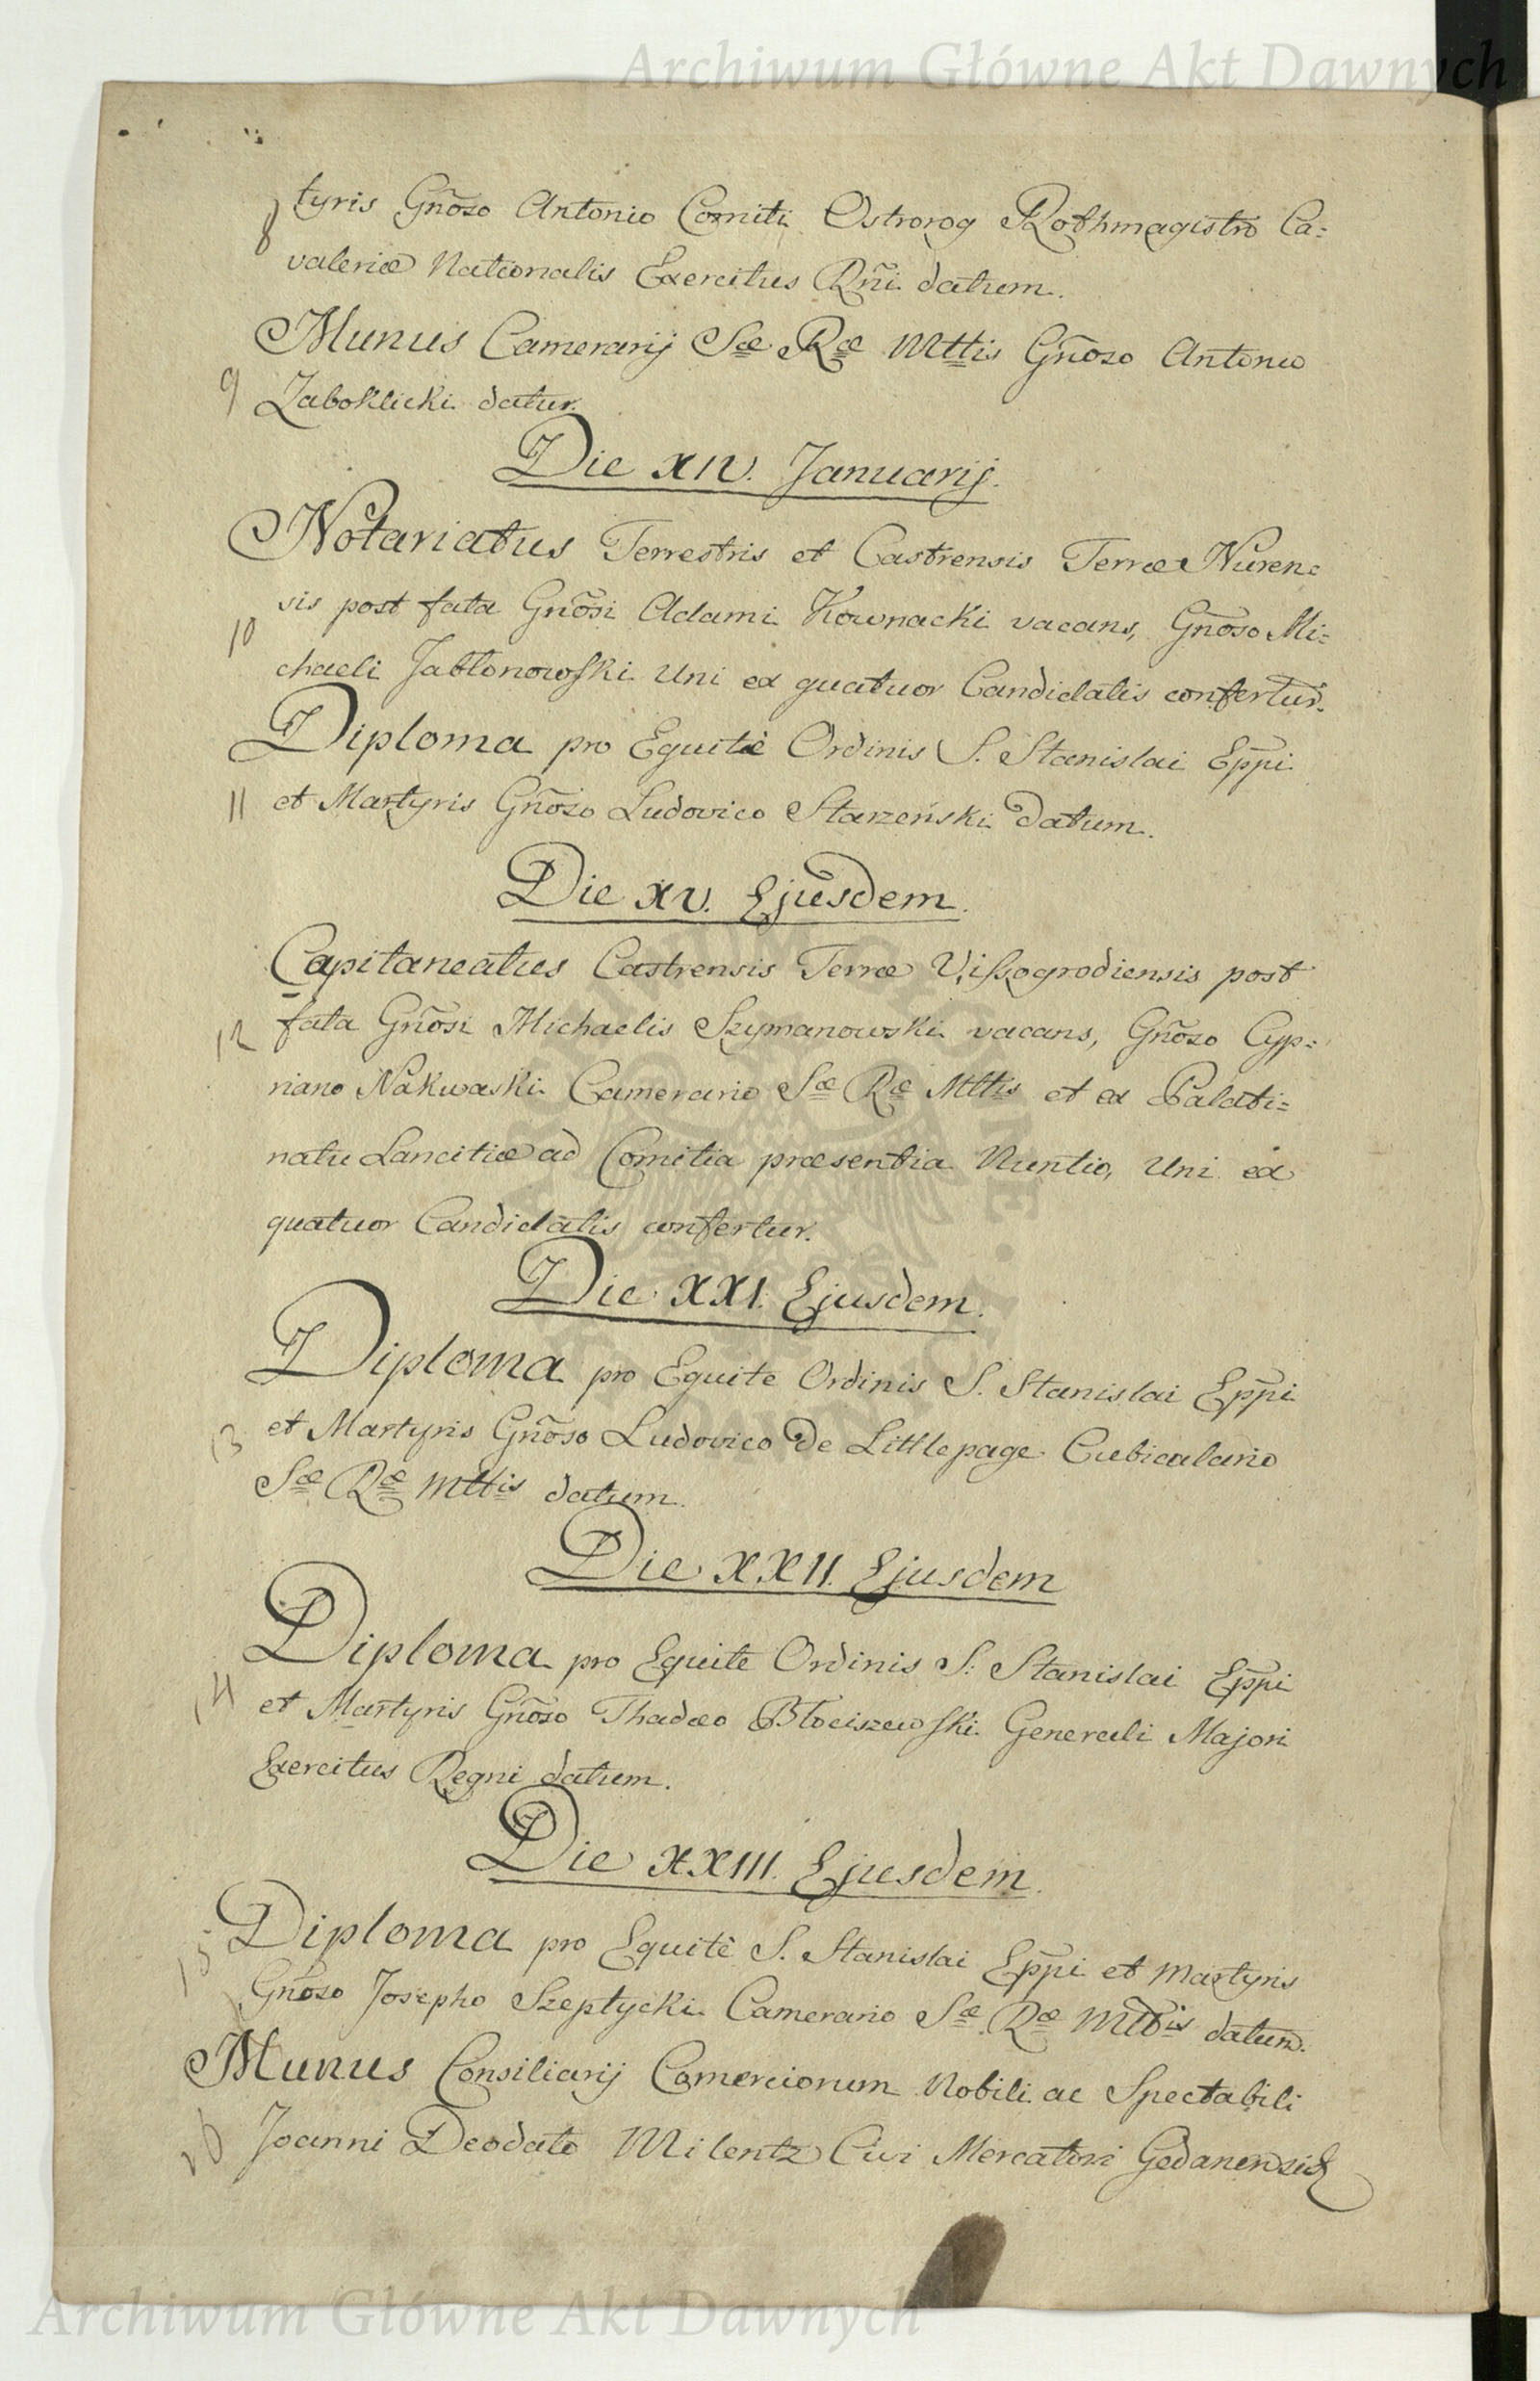 Archiwum Główne Akt Dawnych
8 tyris Gñoso Antonio Comiti Ostrorog Rothmagistro Ca=
valeriæ Nationalis Exercitus Rñi datum.
Munus Camerarij Sæ Ræ Mttis Gñoso Antonio
9 Zaboklicki datur.
Die XIV. Januarij.
Notariatus Terrestris et Castrensis Terræ Nuren=
sis post fata Gñosi Adami Kownacki vacans, Gñoso Mi=
10 chaeli Jabłonowski Uni ex quatuor Candidatis confertur.
Diploma pro Equite Ordinis S. Stanislai Eppi
11 et Martyris Gñoso Ludovico Starzeński datum.
Die XV. Ejusdem.
Capitaneatus Castrensis Terræ Vißogrodiensis post
12 fata Gñosi Michaelis Szymanowski vacans, Gñoso Cyp=
riano Nakwaski Camerario Sæ Ræ Mttis et ex Palati=
natu Lancitiæ ad Comitia præsentia Nuntio, Uni ex
quatuor Candidatis confertur.
Die XXI. Ejusdem.
Diploma pro Equite Ordinis S. Stanislai Eppi
13 et Martyris Gñoso Ludovico De Littlepage Cubiculario
Sæ Ræ Mttis datum.
Die XXII. Ejusdem
Diploma pro Equite Ordinis S. Stanislai Eppi
14 et Martyris Gñoso Thadæo Błociszewski Generali Majori
Exercitus Regni datum.
Die XXIII. Ejusdem.
15 Diploma pro Equite S. Stanislai Eppi et Martyris
Gñoso Josepho Szeptycki Camerario Sæ Ræ Mttis datum.
Munus Consiliarij Comerciorum Nobili ac Spectabili
16 Joanni Deodato Milentz Civi Mercatori Gedanensi
Archiwum Główne Akt Dawnych